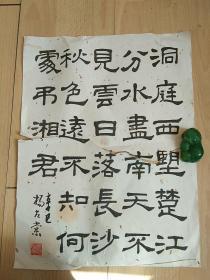 洞庭西朢楚江
分水盡南天不
見雲日落長沙
秋色遠不知何
處弔湘君
辛巳